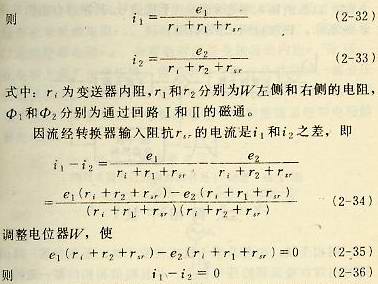 则 i₁ = e₁ / (rᵢ + r₁ + rₛᵣ) (2-32)
i₂ = e₂ / (rᵢ + r₂ + rₛᵣ) (2-33)
式中：rᵢ为变送器内阻，r₁和r₂分别为W左侧和右侧的电阻，
Φ₁和Φ₂分别为通过回路Ⅰ和Ⅱ的磁通。
因流经转换器输入阻抗rₛᵣ的电流是i₁和i₂之差，即
i₁ - i₂ = e₁ / (rᵢ + r₁ + rₛᵣ) - e₂ / (rᵢ + r₂ + rₛᵣ)
= [e₁(rᵢ + r₂ + rₛᵣ) - e₂(rᵢ + r₁ + rₛᵣ)] / [(rᵢ + r₁ + rₛᵣ)(rᵢ + r₂ + rₛᵣ)] (2-34)
调整电位器W，使
e₁(rᵢ + r₂ + rₛᵣ) - e₂(rᵢ + r₁ + rₛᵣ) = 0 (2-35)
则 i₁ - i₂ = 0 (2-36)